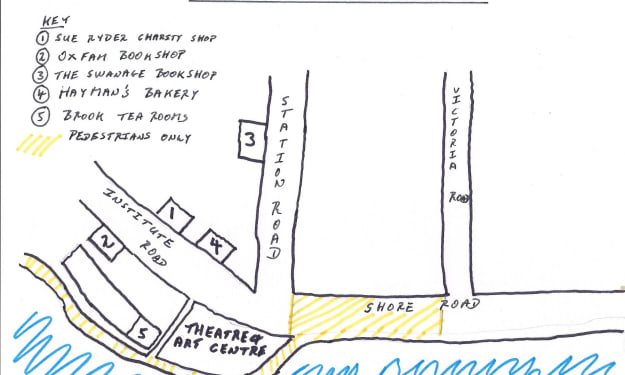 KEY
① SUE RYDER CHARITY SHOP
② OXFAM BOOKSHOP
③ THE SWANAGE BOOKSHOP
④ HAYMAN'S BAKERY
⑤ BROOK TEA ROOMS
PEDESTRIANS ONLY
STATION ROAD
VICTORIA ROAD
3
INSTITUTE ROAD
1
4
2
SHORE ROAD
5
THEATRE &
ART CENTRE